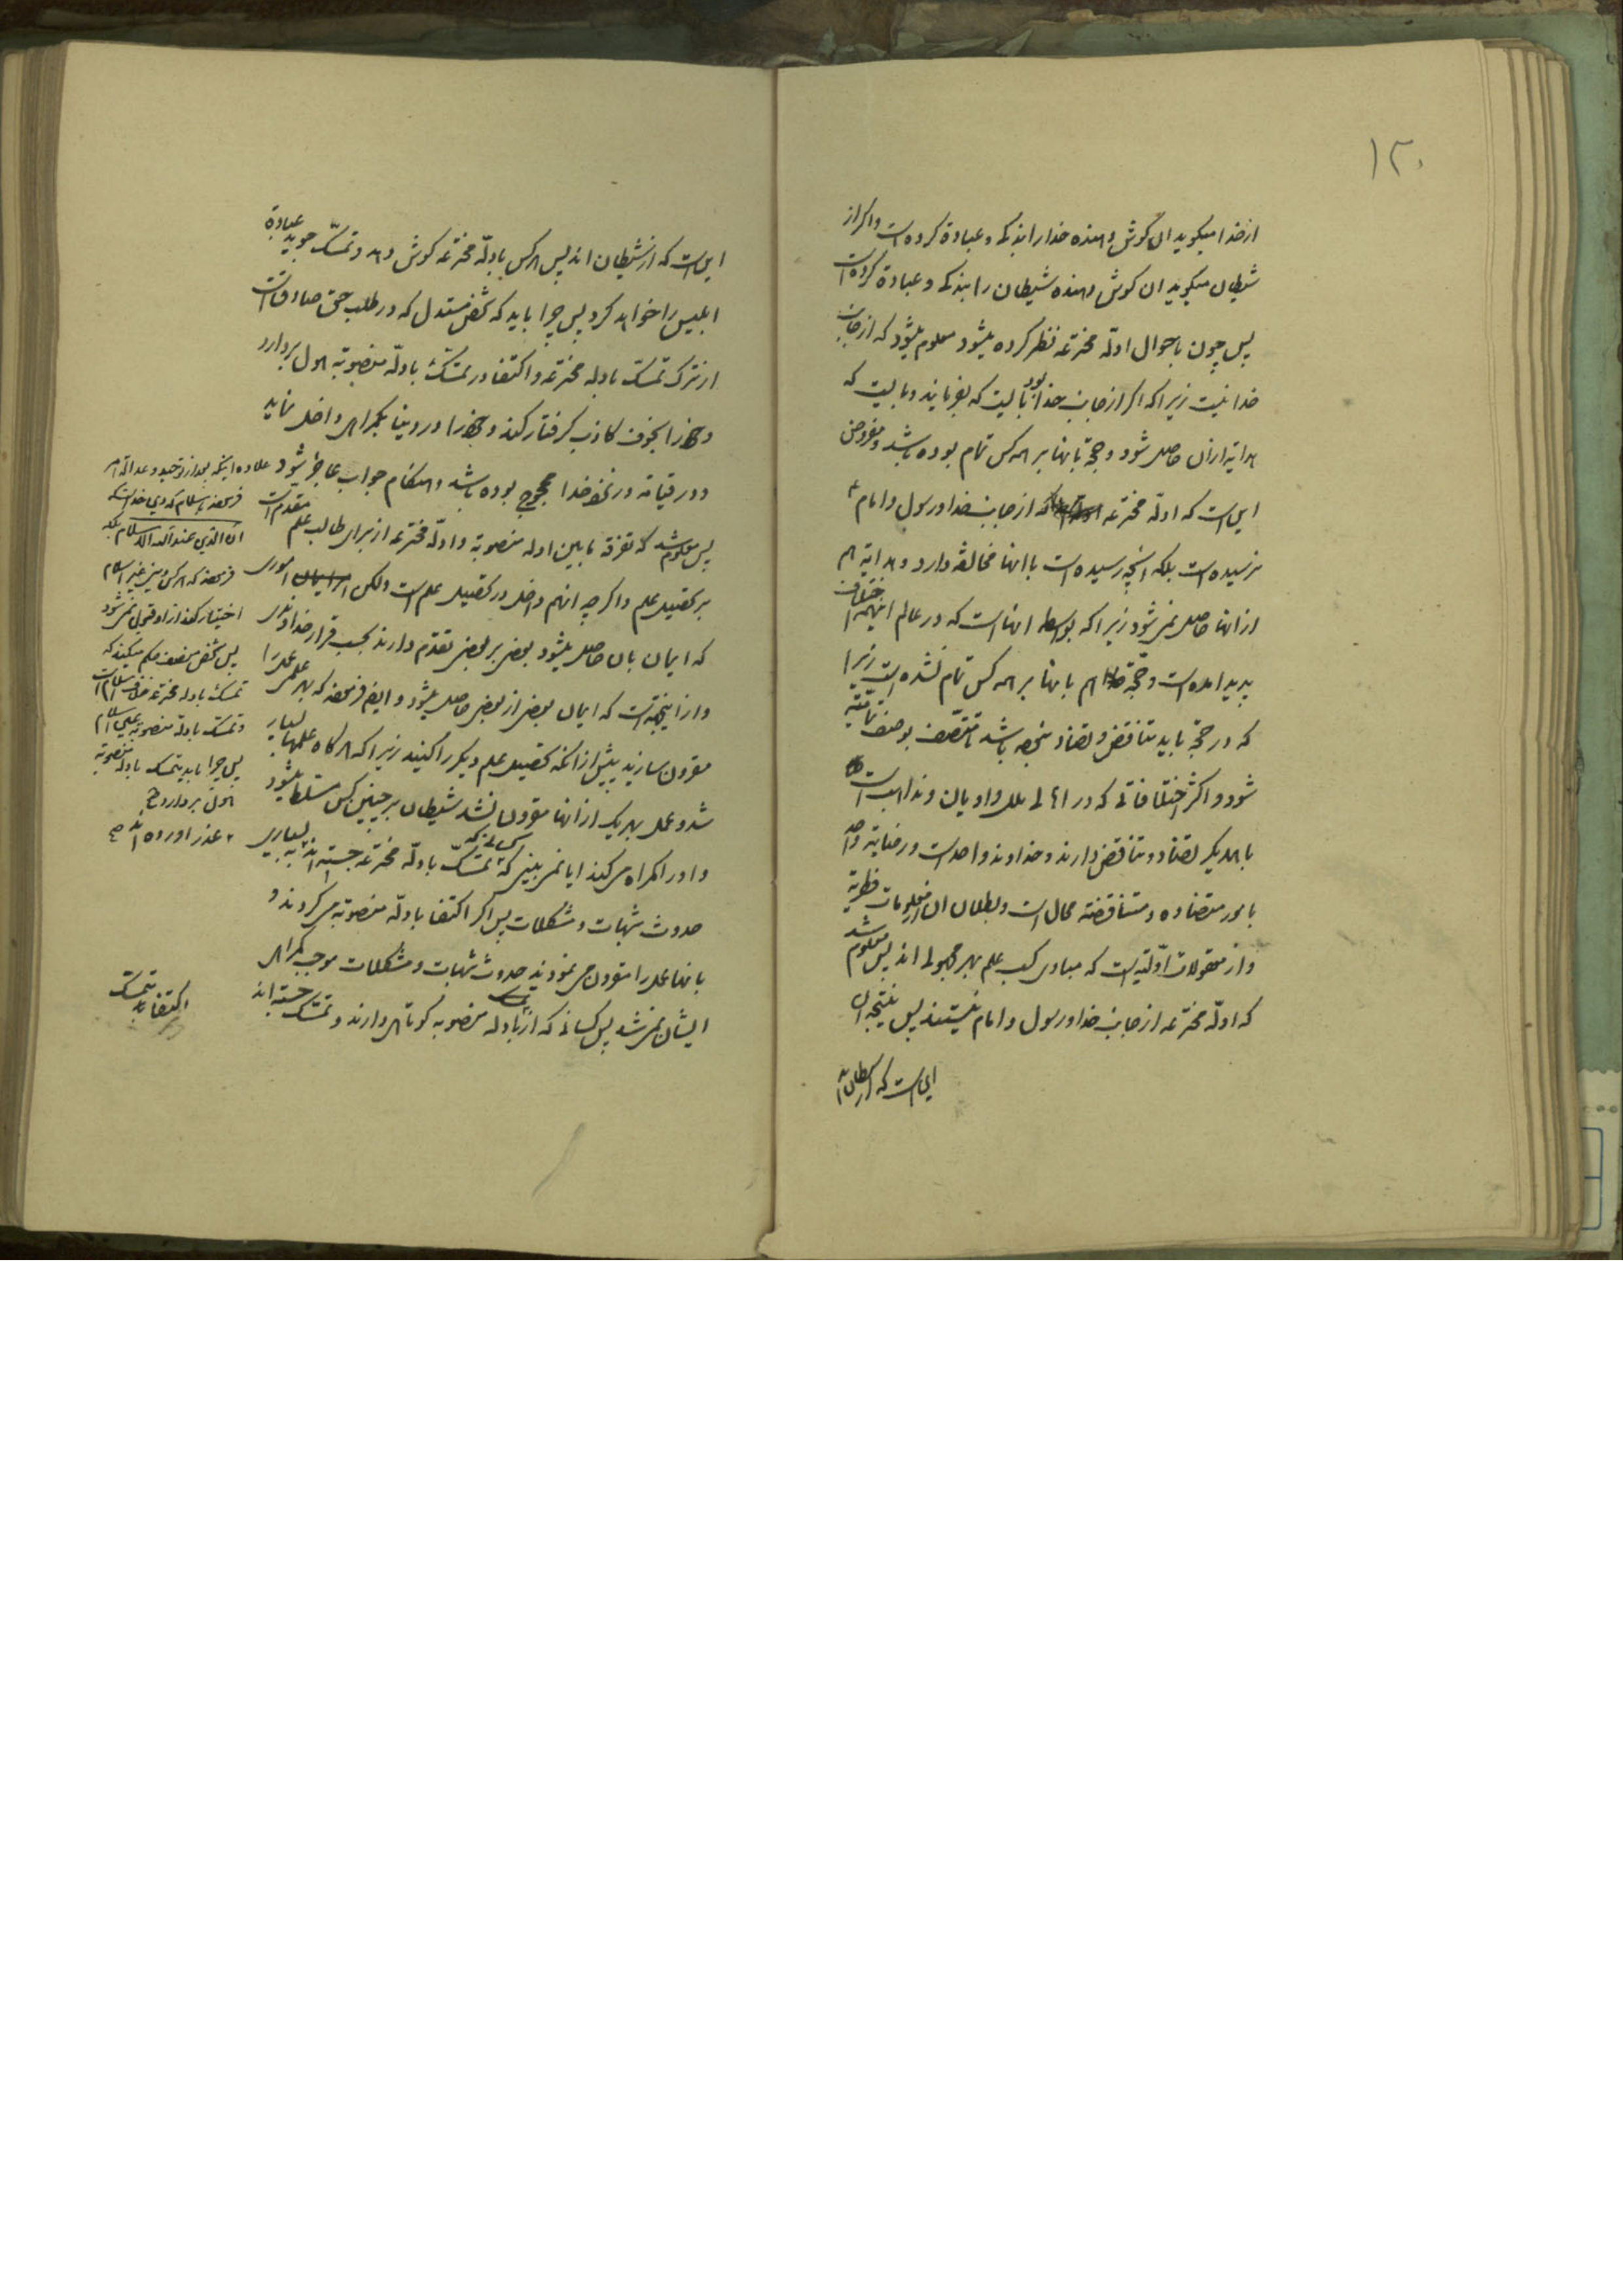 ۱۲۰
از خدا میکوید ان گوش دهنده خدا را بندکی و عبادة کرده است و اکر از
شیطان میکوید ان کوش دهنده شیطان را بندکی و عبادة کرده است
پس چون باحوال ادلّه مخترعه نظر کرده میشود معلوم میشود که از جانب
خدا نیست زیرا که اکر از جانب خدا بود بایست که بفرمایند و بایست که
هدایة از ان حاصل شود و حجّة بانها بر همه کس تمام بوده باشد و مفروض
این است که ادلّه مخترعه از جانب خدا و رسول و امام ع
نرسیده است بلکه انچه رسیده است با انها مخالفة دارد و هدایة هم
از انها حاصل نمیشود زیرا که بواسطه انها است که در عالم اینهمه اختلاف
پدید امده است و حجّة هم بانها بر همه کس تمام نشده است زیرا
که در حجّة باید تناقض و تضاد نبوده باشد تا متّصف بوصف تمامیّة
شود و اکثر اختلافاتی که در اهالی ملل و ادیان و مذاهب است
با همدیکر تضاد و تناقض دارند و خداوند واحد است و رضایة واحد
بامور متضاده و متناقضه محال است و بطلان ان از معلومات فطریه
و از معقولات اوّلیّه است که مبادی کسب علم بهر مجهولی اند پس معلوم شد
که ادلّه مخترعه از جانب خدا و رسول و امام نیستند پس نتیجه ان
این است که از شیطان اند
این است که از شیطان اند پس هر کس بادلّه مخترعه کوش دهد و تمسّک جوید عبادة
ابلیس را خواهد کرد پس چرا باید که شخص مستدل که در طلب حقّ صادق است
از ترک تمسّک بادله مخترعه و اکتفا در تمسّک بادلّه منصوبّه هول بردارد
و خود را بخوف کاذب کرفتار کند و خود را در دنیا بکمراهی داخل نماید
و در قیامة در نزد خدا محجوج بوده باشد و هنکام جواب عاجز شود
پس معلوم شد که تفرقه مابین ادله منصوبّه و ادلّه مخترعه از برای طالب علم مقدم است
بر تحصیل علم و اکرچه انهم داخل در تحصیل علم است ولکن اموری
که ایمان بان حاصل میشود بعضی بر بعضی تقدم دارند بحسب قرار خداوندی
و از اینجهة است که ایمان بعضی از بعضی حاصل میشود و ایضا فرموده که بهر علمی عمل را
مقرون سازید پیش از انکه تحصیل علم دیکر را کنید زیرا که هر کاه علمها بسیار
شد و عمل بهر یک از انها مقرون نشد شیطان بر چنین کس مسلّط میشود
و او را کمراه میکند ایا نمی بینی کسانیکه تمسّک بادلّه مخترعه جسته اند به بسیاری
حدوث شبهات و مشکلات پس اکر اکتفا بادلّه منصوبّه میکردند و
بانها عمل را مقرون می نمودند حدوث شبهات و مشکلات موجب کمراهی
ایشان نمی شد پس کسانی که از تمسک بادله منصوبه کوتاهی دارند و تمسّک جسته اند
علاوه اینکه بعد از توحید و عدالة امر
فرموده باسلام که دین خداست که
ان الدین عند الله الاسلام بلکه
فرموده که هر کس دین غیر اسلام
اختیار کند از او قبول نمی شود
پس شخص منصف حکم میکند که
تمسّک بادله مخترعه خلاف اسلام است
و تمسّک بادلّه منصوبه عین اسلام
پس چرا باید بتمسک بادله منصوبّه
هول بردارد
عذر اورده اند صح
اکتفا به تمسّک